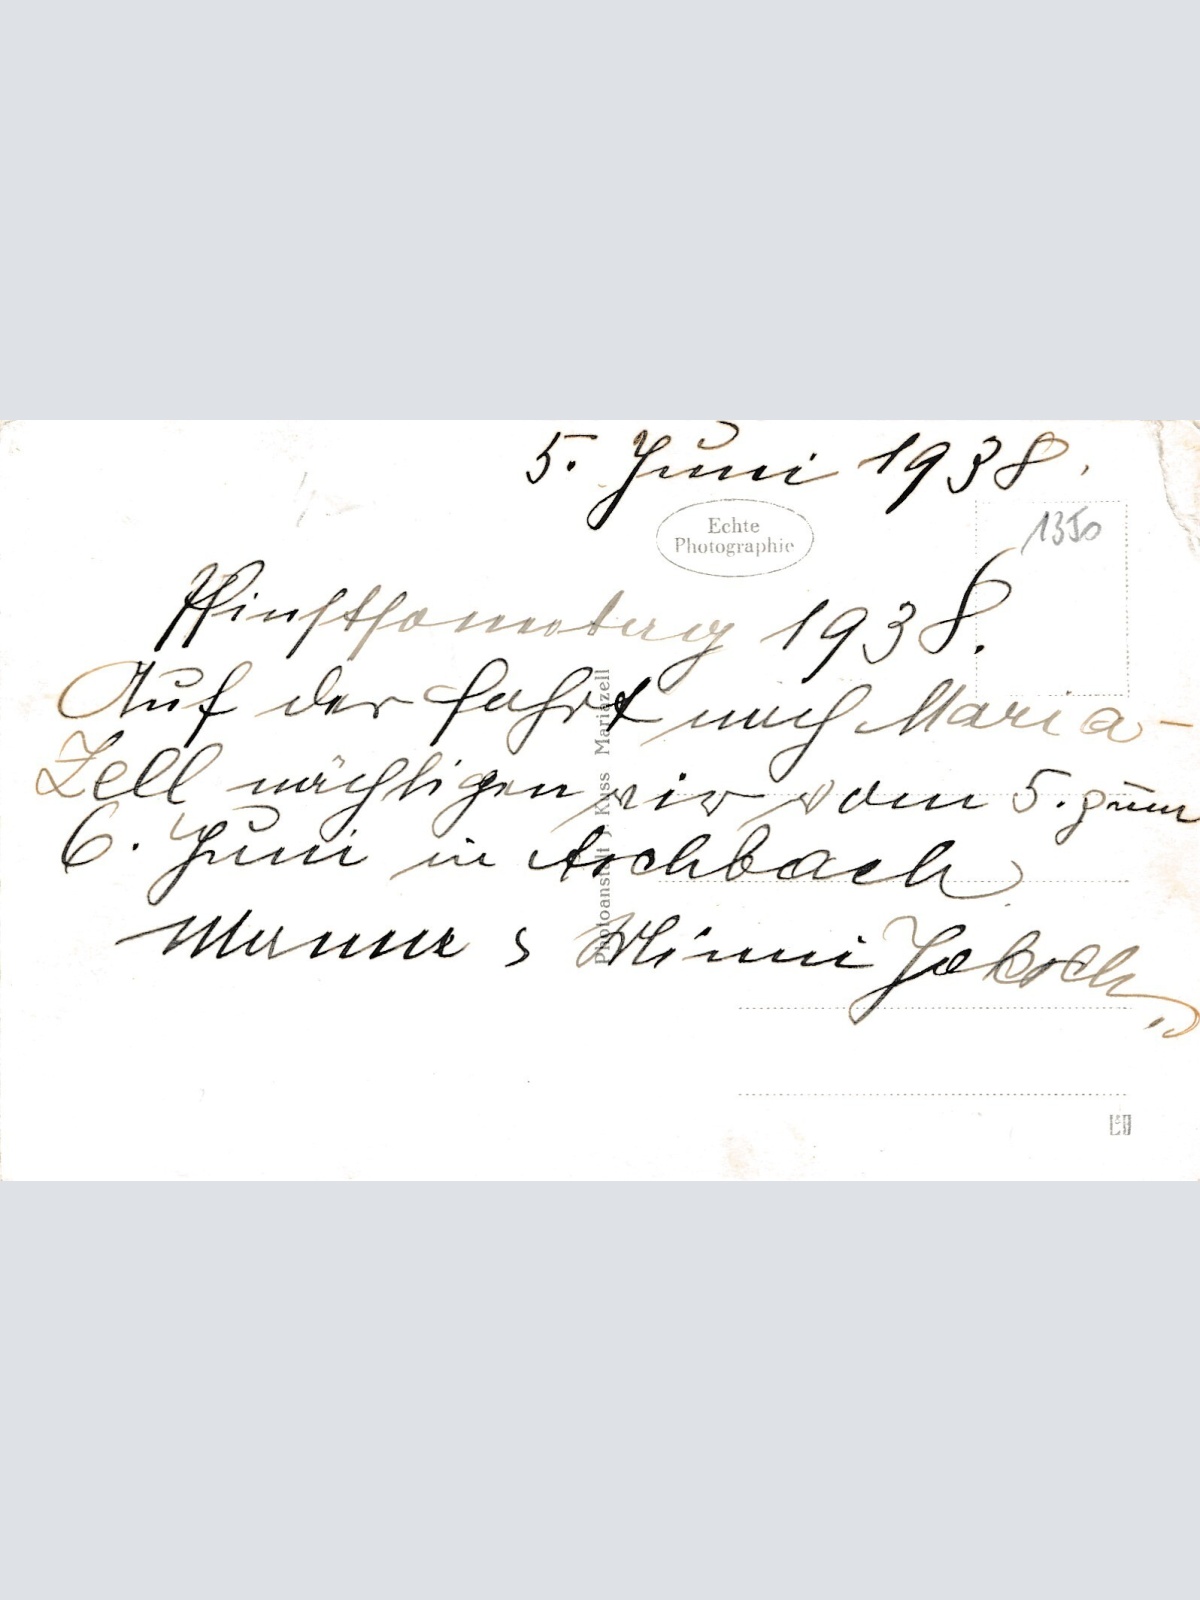 5. Juni 1938.
Echte
Photographie
1350
Pfingstsonntag 1938.
Auf der Fahrt nach Maria-
Zell nächtigen wir vom 5. zum
6. Juni in Aschbach
Minni
Photoanstalt J. Kuss Mariazell